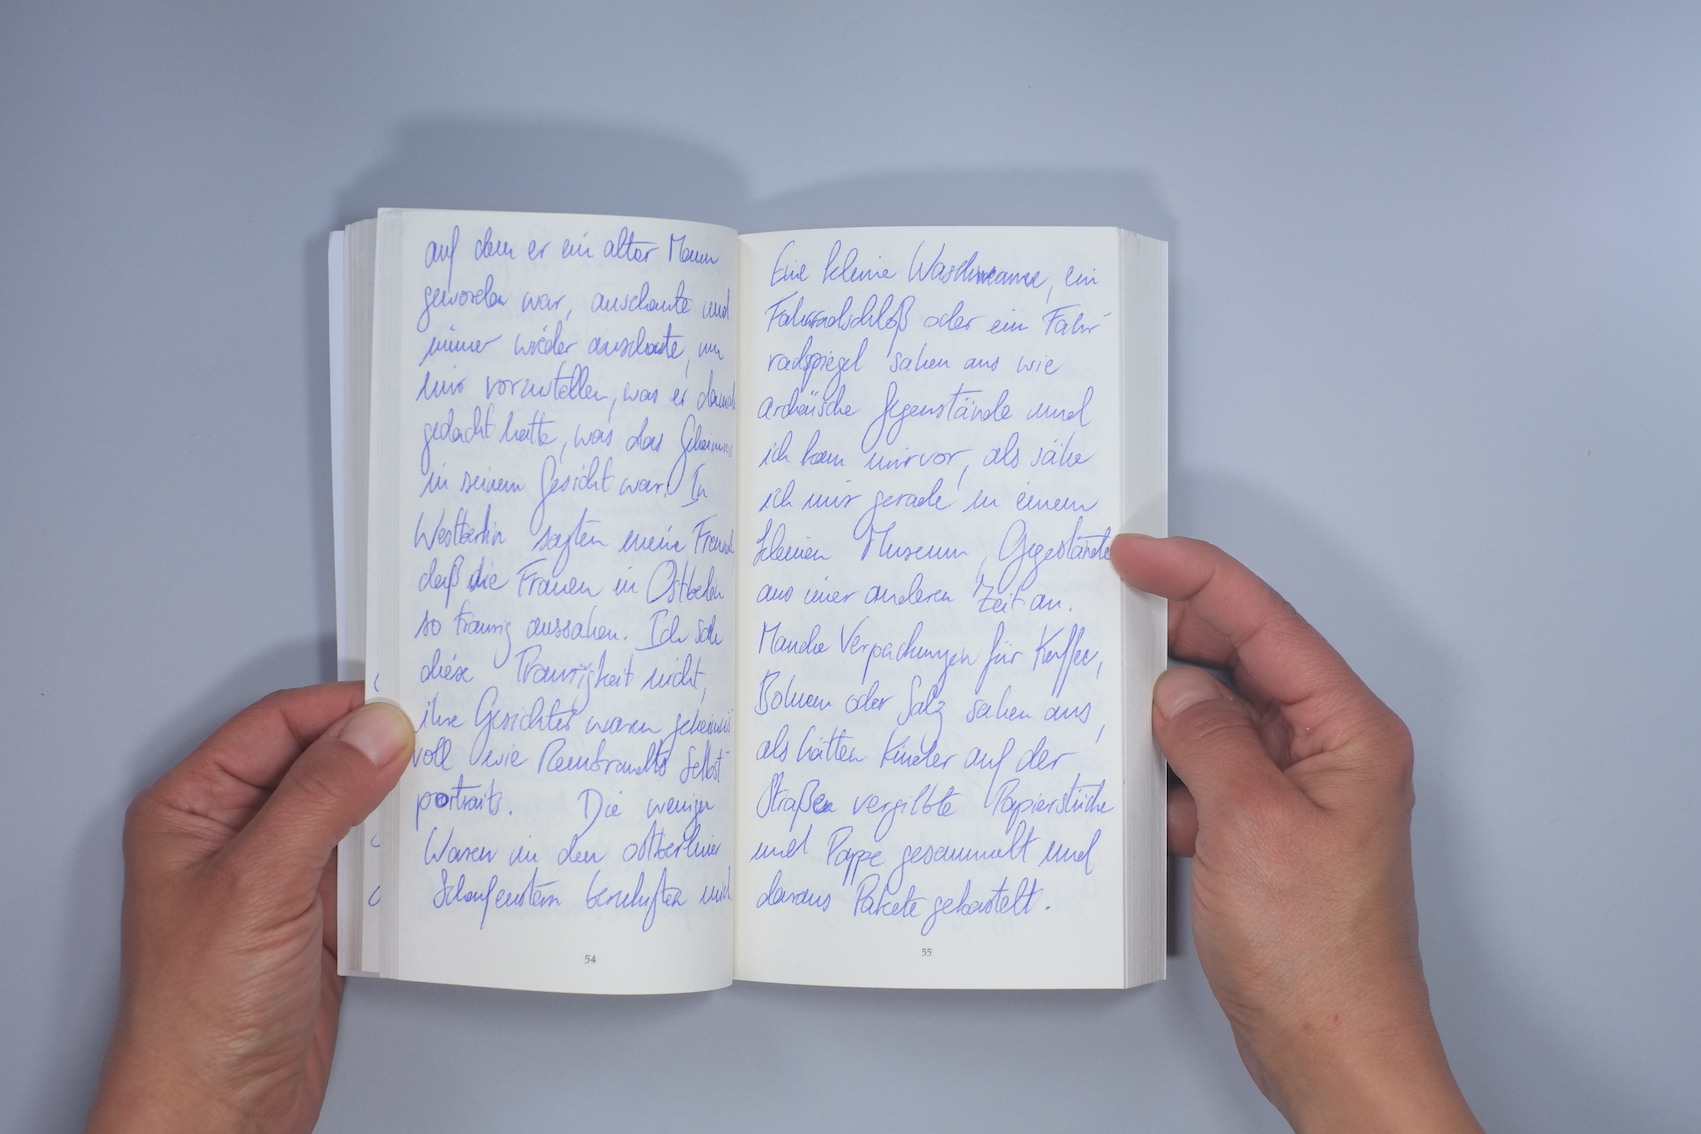 auf dem er ein alter Mann
geworden war, anschaute und
immer wieder anschaute, um
mir vorzustellen, was er damals
gedacht hatte, was das Geheimnis
in seinem Gesicht war. In
Westberlin sagten meine Freunde
daß die Frauen in Ostberlin
so traurig aussahen. Ich sah
diese Traurigkeit nicht,
ihre Gesichter waren geheimnis
voll wie Rembrandts Selbst-
portraits. Die wenigen
Waren in den ostberliner
Schaufenstern beruhigten mich
54
Eine kleine Waschwanne, ein
Fahrradschloß oder ein Fahr-
radspiegel sahen aus wie
archaische Gegenstände und
ich kam mir vor, als sähe
ich mir gerade in einem
kleinen Museum, Gegestände
aus einer anderen Zeit an.
Manche Verpackungen für Kaffee,
Bohnen oder Salz sahen aus,
als hätten Kinder auf der
Straßen vergilbte Papierstücke
und Pappe gesammelt und
daraus Pakete gebastelt.
55